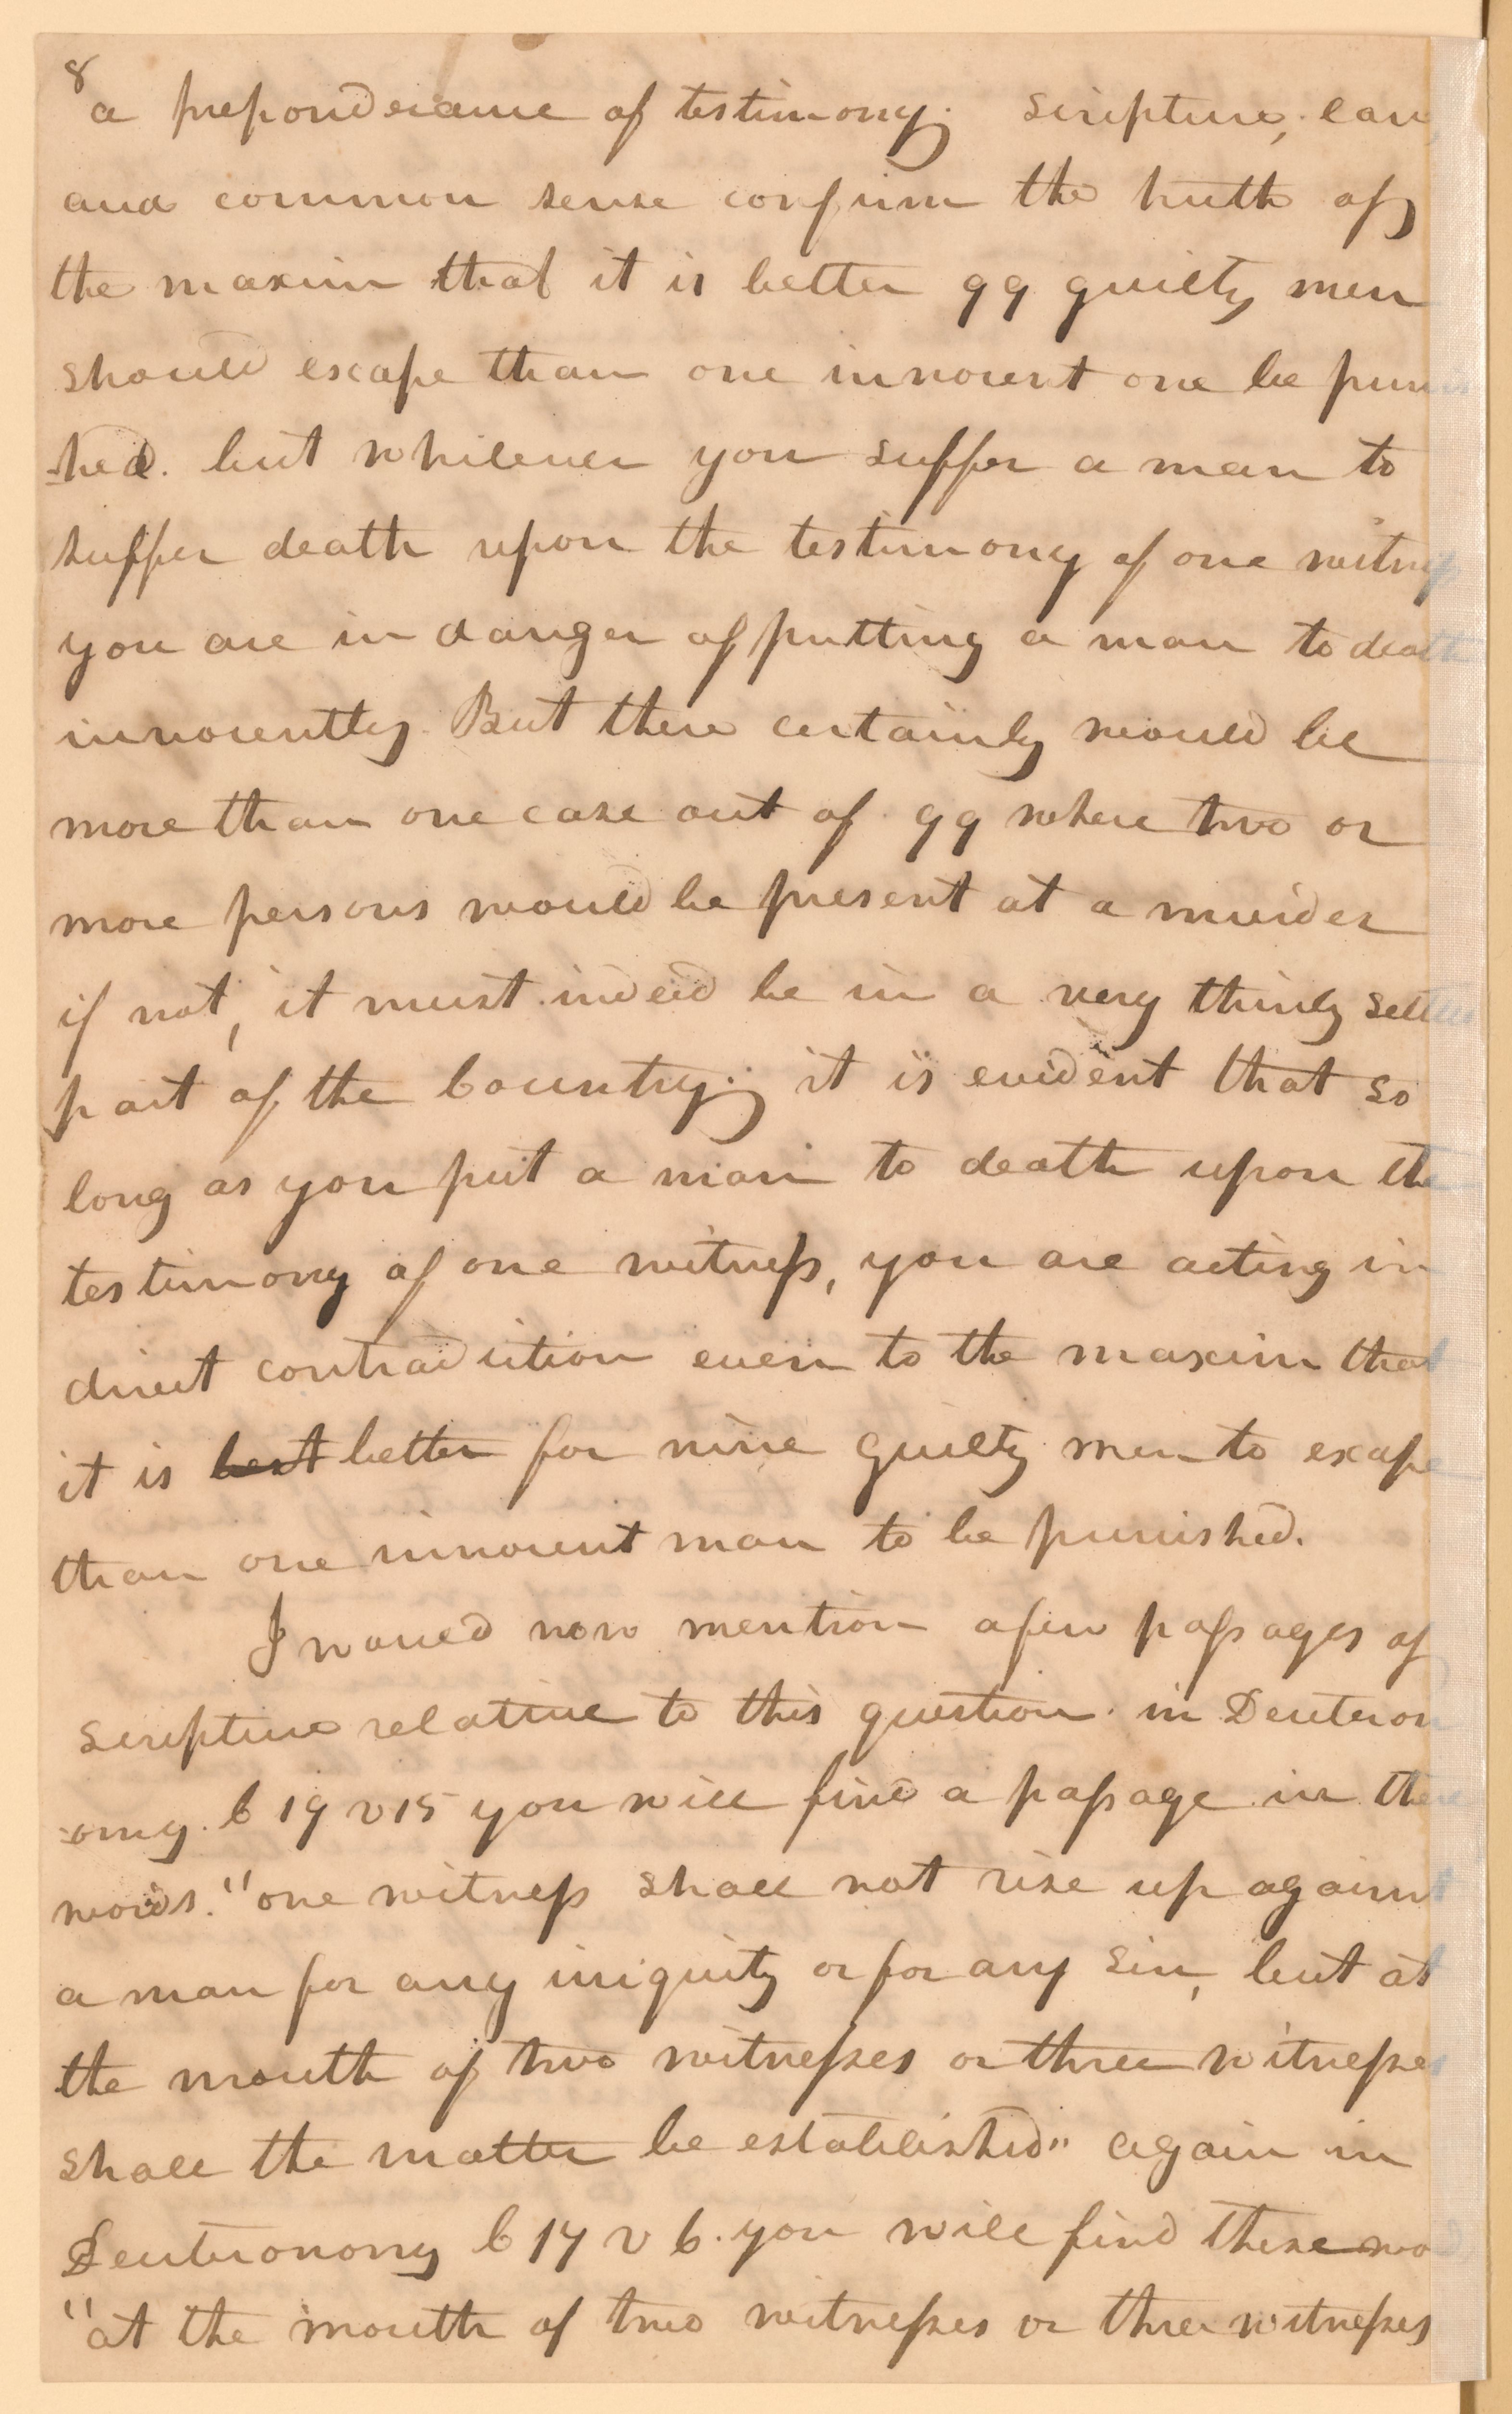 8
a preponderance of testimony. scripture, law,
and common sense confirm the truth of
the maxim that it is better 99 guilty men
should escape than one innocent one be punis
-hed. but whilever you suffer a man to
suffer death upon the testimony of one witness
you are in danger of putting a man to death
innocently. But there certainly would be
more than one case out of 99 where two or
more persons would be present at a murder
if not, it must indeed be in a very thinly settled
part of the Country; it is evident that so
long as you put a man to death upon the
testimony of one witness, you are acting in
direct contradiction even to the maxim that
it is best better for nine guilty men to escape
than one innocent man to be punished.
I would now mention a few passages of
scripture relative to this question. in Deuteron
-omy. C 19 v 15 you will find a passage in these
words. "one witness shall not rise up against
a man for any iniquity or for any sin, but at
the mouth of two witnesses or three witnesses
shall the matter be established" again in
Deuteronomy C 17 v 6. you will find these wo
"at the mouth of two witnesses or three witnesses